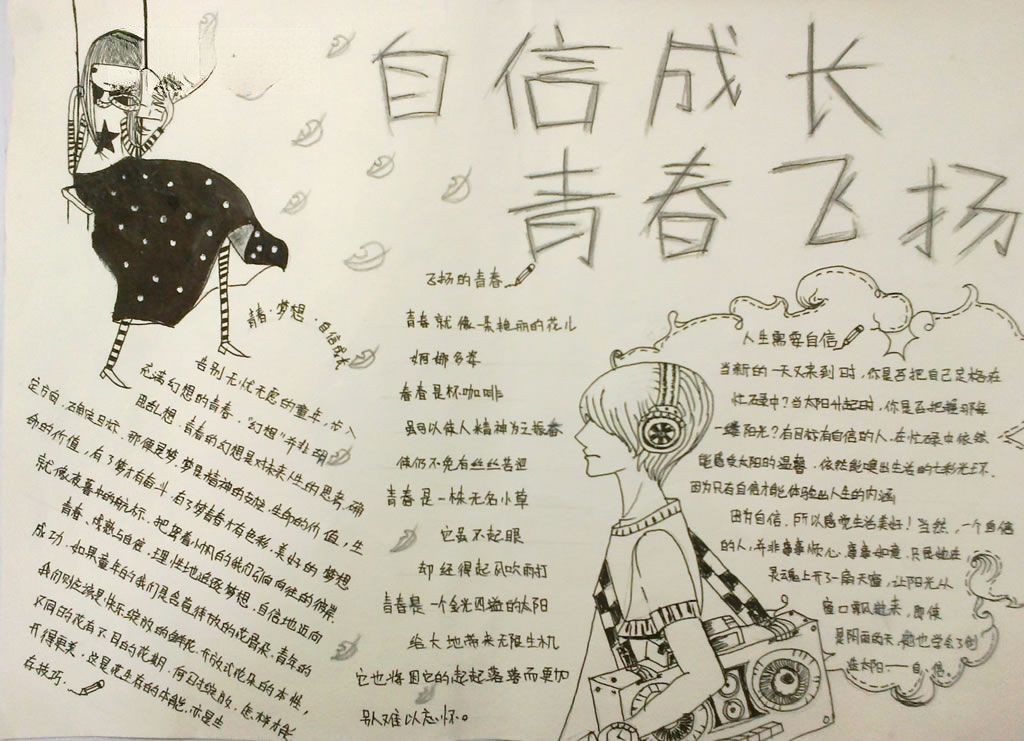 自信成长
青春飞扬
青春·梦想·自信成长
告别无忧无虑的童年,步入
充满幻想的青春。“幻想”并非胡
思乱想,青春的幻想是对未来人生的思索,确
定方向,确定目标,那便是梦。梦是精神的支柱,生命的价值,生
命的价值,有了梦才有奋斗,有了梦青春才有色彩,美好的梦想
就像夜幕中的航标,把坐着小帆的我们引向向往的彼岸。
青春,成熟与自然,理性地追逐梦想,自信地迈向
成功。如果童年的我们是含苞待放的花骨朵,青年的
我们则应该是快乐绽放的鲜花,开放式花朵的本性,
不同的花有不同的花期,何时绽放,怎样才能
开得更美,这是花生存的本能,亦是生
存技巧。
飞扬的青春
青春就像一朵艳丽的花儿
婀娜多姿
春春是杯咖啡
虽可以使人精神为之振奋
但仍不免有丝丝苦涩
青春是一株无名小草
它虽不起眼
却经得起风吹雨打
青春是一个金光四溢的太阳
给大地带来无限生机
它也将因它的起起落落而更加
别难以忘怀。
人生需要自信
当新的一天又来到时,你是否把自己定格在
忙碌中?当太阳升起时,你是否把握那每
一缕阳光?有目标有自信的人,在忙碌中依然
能感受太阳的温馨,依然能唤出生活的七彩光环。
因为只有自信才能体验出人生的内涵
因为自信,所以感觉生活美好!当然,一个自信
的人,并非事事顺心,事事如意,只是他在
灵魂上开了一扇天窗,让阳光从
窗口飘进来,即使
是阴雨的天,他也学会了创
造太阳——自信